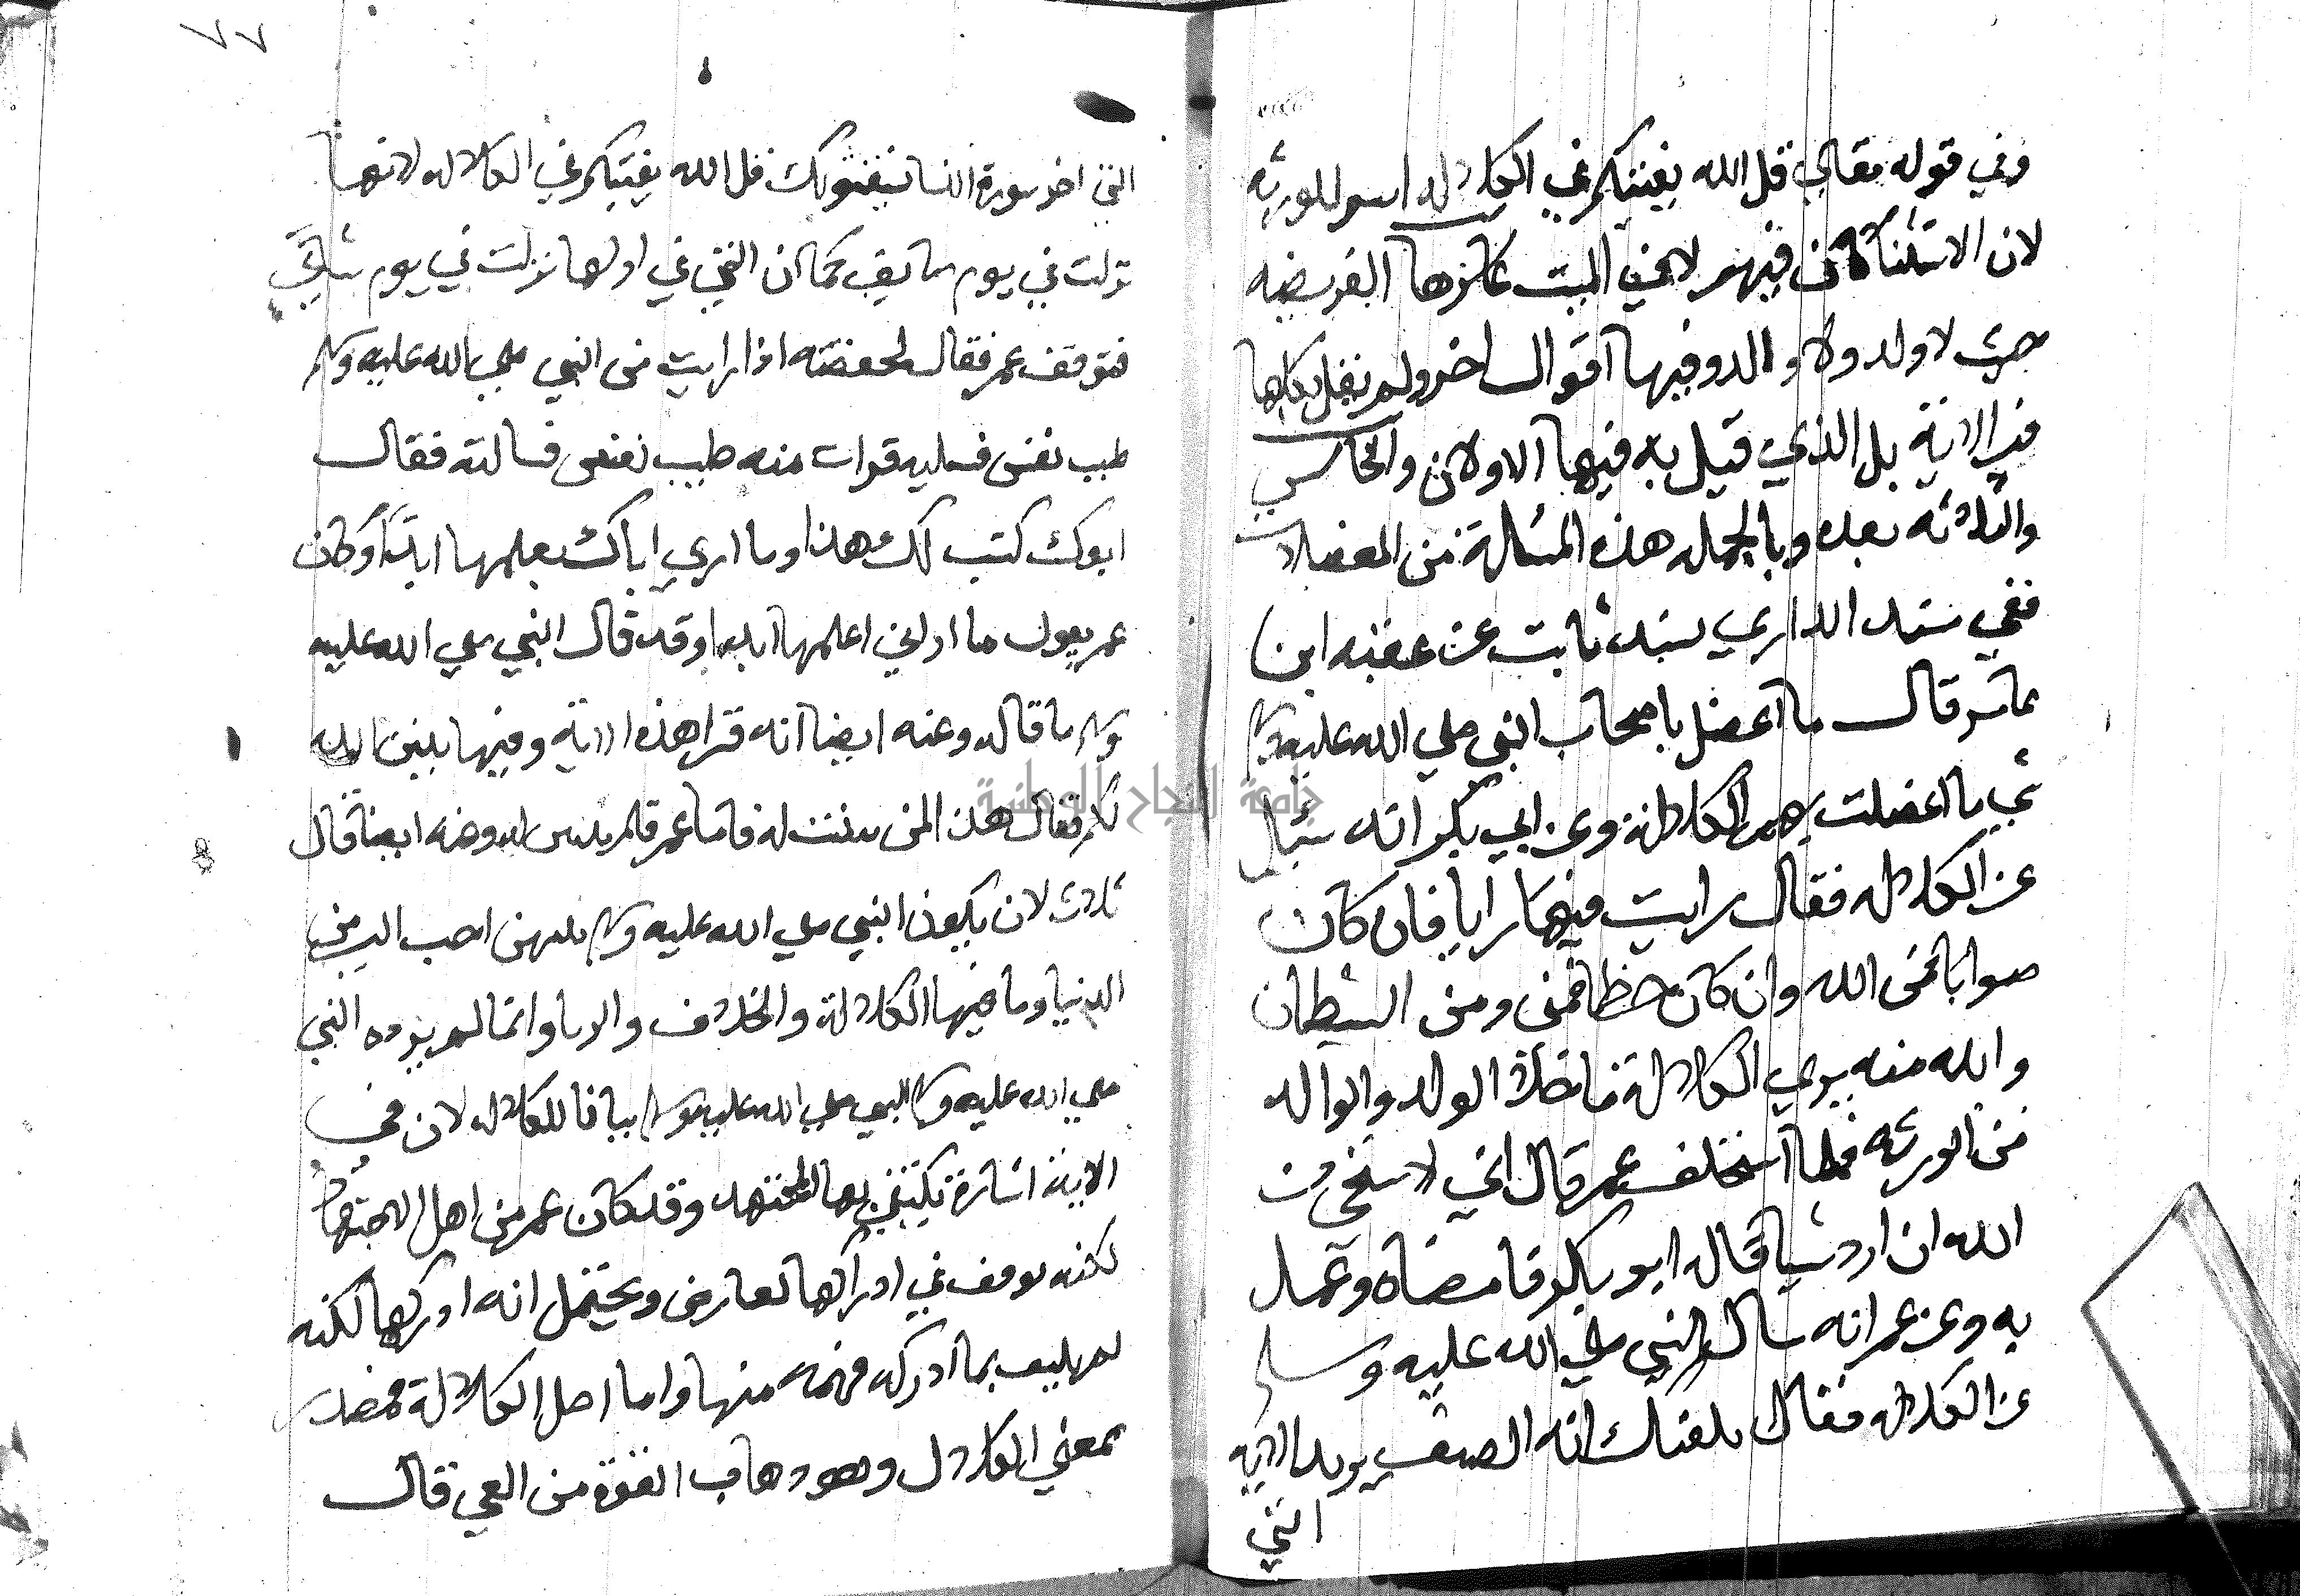 وفي قوله تعالي قل الله يفتيكم في الكلاله اسم للورثه
لان الاستثنا كان فيهم لا في الميت عكازها الفريضه
حرث لا ولد ولا والد وفيها اقوال اخر ولم نقل بكلها
في الاية بل الذي قيل به فيها الاولان والخامس
والثلاثه بعده وبالجمله هذه المسئلة من المعضلات
ففي مسند الداري بسند ثابت عن عقبه ابن
عامر قال ما اعضل باصحاب النبي صلي الله عليه وسلم
شي ما اعضلت بهم الكلالة وعن ابي بكر انه سئل
عن الكلاله فقال رايت فيها رايا فان كان
صوابا فمن الله وان كان خطا فمني ومن الشيطان
والله منه بري الكلالة ما خلا الولد والوالد
من الورثه فلما استخلف عمر قال اني لاستحي من
الله ان ارد شيا قاله ابو بكر فامضاه وعمل
به وعن عمر انه سال النبي صلي الله عليه وسلم
عن الكلاله فقال يكفيك اية الصيف يريد الايه
التي
٧٧
التي اخر سورة النسا يستفتونك قل الله يفتيكم في الكلاله لانها
نزلت في يوم صايف كما ان التي في اولها نزلت في يوم شاتي
فتوقف عمر فقال لحفصته اذا رايت من النبي صلي الله عليه وسلم
طيب نفس فسليه فرات منه طيب نفس فسالته فقال
ابوك كتب لك هذا وما اري اباك يعلمها ابدا وكان
عمر يقول ما اراني اعلمها ابدا وقد قال النبي صلي الله عليه
وسلم ما قال وعنه ايضا انه قرا هذه الاية وفيها يبين الله
لكم فقال هذا لمن بينت له فاما عمر فلم يتبين له وعنه ايضا قال
ثلاث لان يكون النبي صلي الله عليه وسلم بينهن احب الي من
الدنيا وما فيها الكلالة والخلاف والربا وانما لم يزده النبي
صلي الله عليه وسلم النبي صلي الله عليه وسلم بيانا للكلاله لان في
الاية اشارة يكتفي بها المجتهد وقد كان عمر من اهل الاجتهاد
لكنه توقف في ادراكها لعارض ويحتمل انه ادركها لكنه
لم يكتف بما ادركه فهمه منها واما اصل الكلالة فمصدر
بمعني الكلال وهو ذهاب القوة من العي قال
جامعة النجاح الوطنية